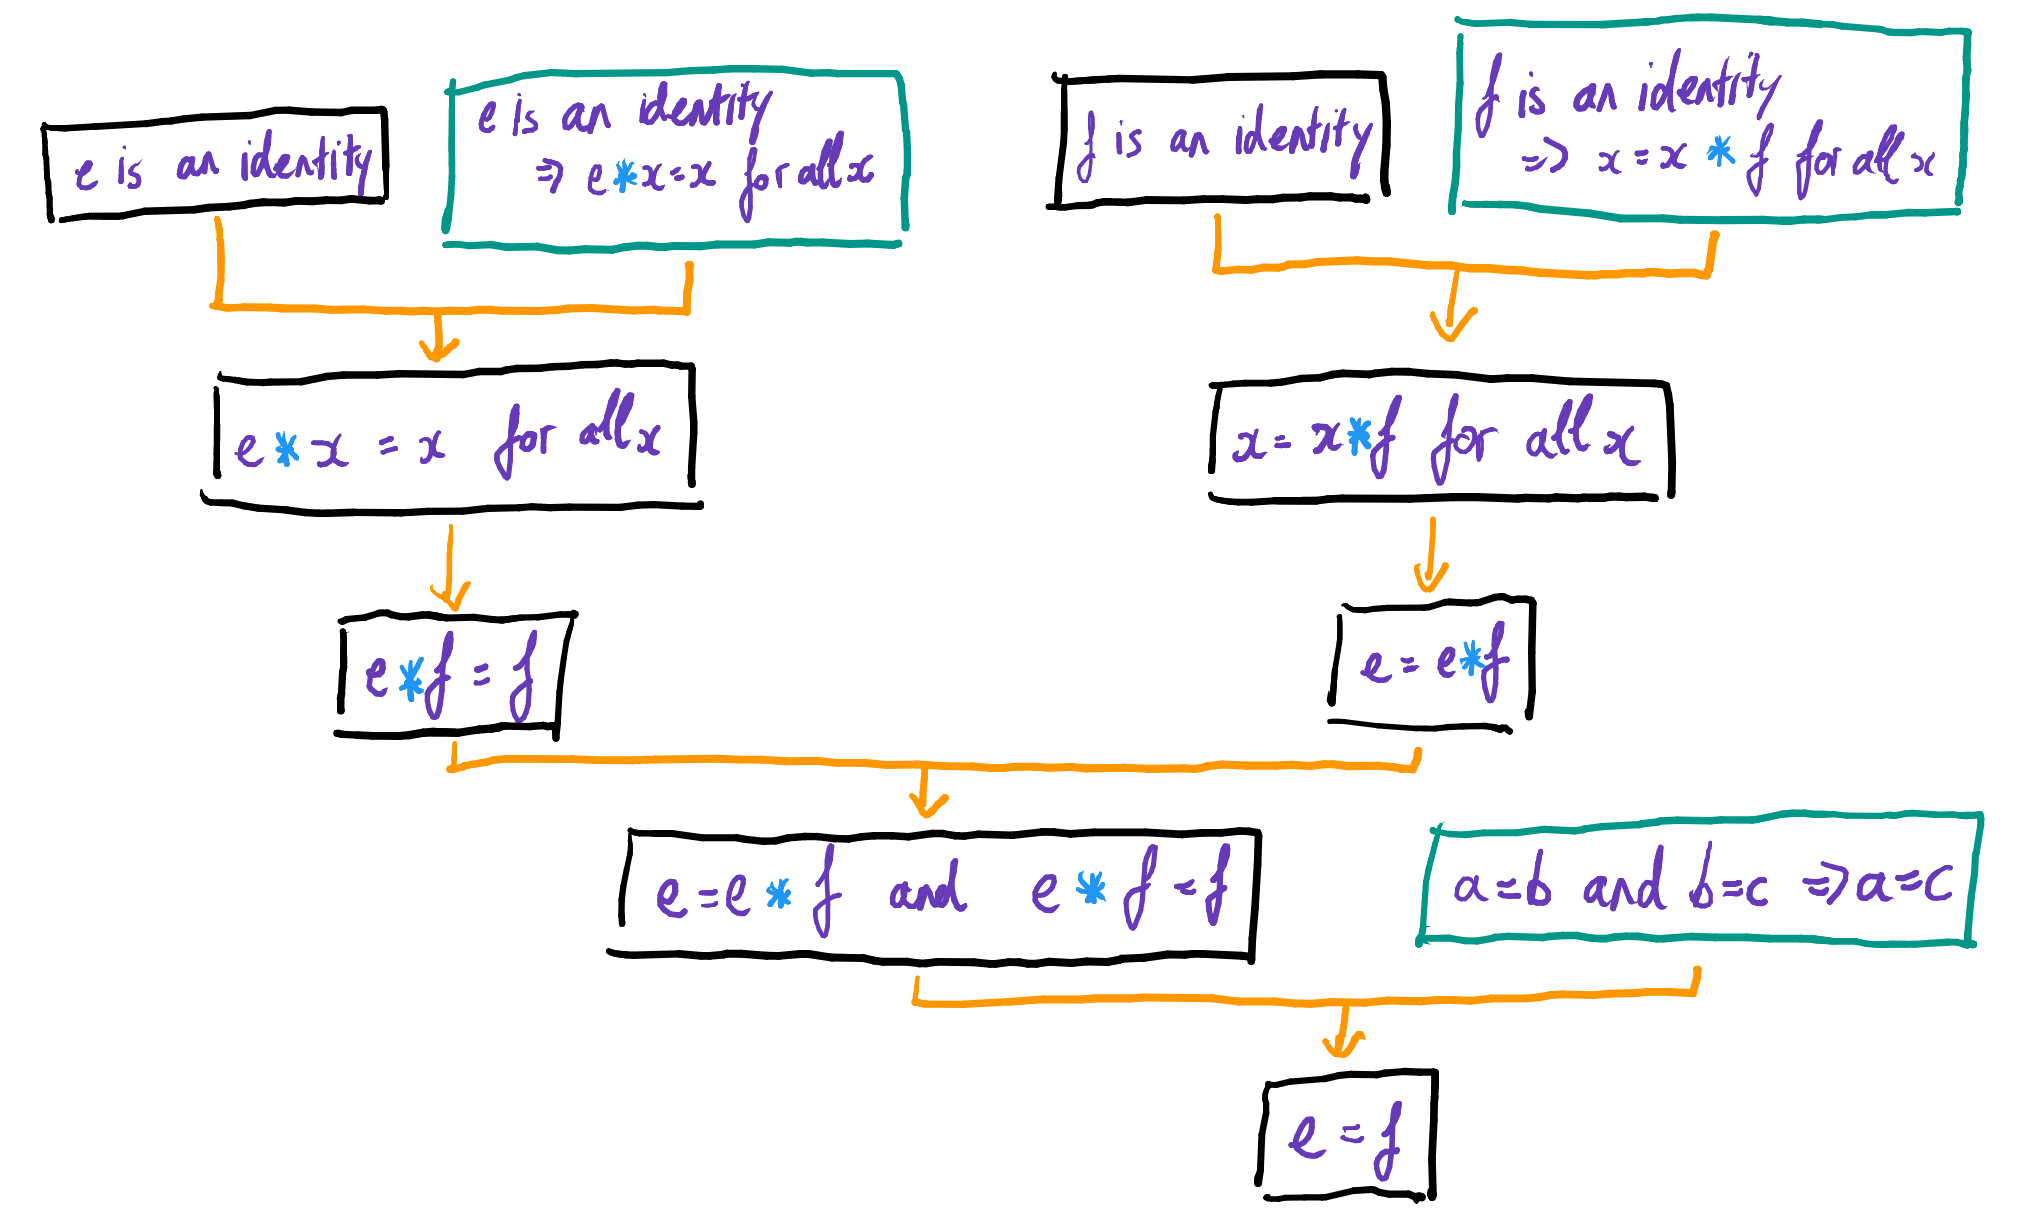 e is an identity
e is an identity
⇒ e * x = x for all x
f is an identity
f is an identity
=> x = x * f for all x
e * x = x for all x
x = x * f for all x
e * f = f
e = e * f
e = e * f and e * f = f
a = b and b = c ⇒ a = c
e = f